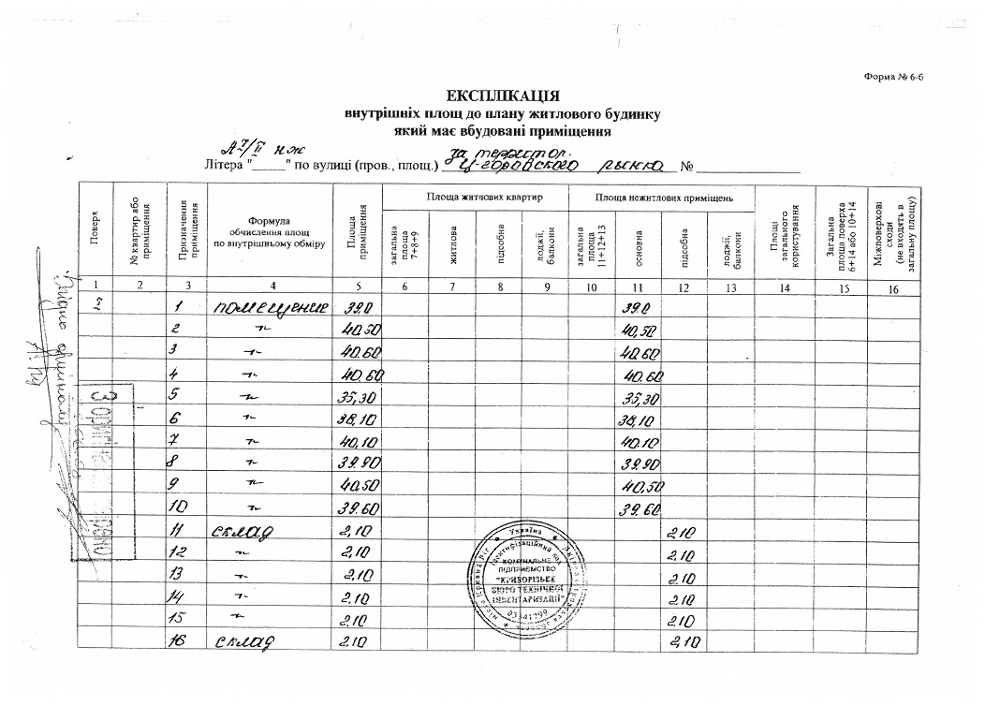 Форма № 6-б
ЕКСПЛІКАЦІЯ
внутрішніх площ до плану житлового будинку
який має вбудовані приміщення
Літера "А I/II нж" по вулиці (пров., площ.) за территор. Ц-городского рынка №
Поверх
№ квартир або приміщення
Призначення приміщення
Формула обчислення площ по внутрішньому обміру
Площа приміщення
Площа житлових квартир
загальна площа 7+8+9
житлова
підсобна
лоджії, балкони
Площа нежитлових приміщень
загальна площа 11+12+13
основна
підсобна
лоджії, балкони
Площі загального користування
Загальна площа поверха 6+14 або 10+14
Міжповерхові сходи (не входять в загальну площу)
1 2 3 4 5 6 7 8 9 10 11 12 13 14 15 16
I 1 помещение 39.0 39.0
2 -"- 40.50 40,50
3 -"- 40.60 40.60
4 -"- 40.60 40.60
5 -"- 35,30 35,30
6 -"- 38,10 38,10
7 -"- 40,10 40.10
8 -"- 39.90 39.90
9 -"- 40.50 40,50
10 -"- 39.60 39.60
11 склад 2,10 2.10
12 -"- 2,10 2.10
13 -"- 2.10 2.10
14 -"- 2.10 2.10
15 -"- 2.10 2.10
16 склад 2.10 2,10
Україна
Ідентифікаційний код
КОМУНАЛЬНЕ
ПІДПРИЄМСТВО
"КРИВОРІЗЬКЕ
БЮРО ТЕХНІЧНОЇ
ІНВЕНТАРИЗАЦІЇ"
03341799